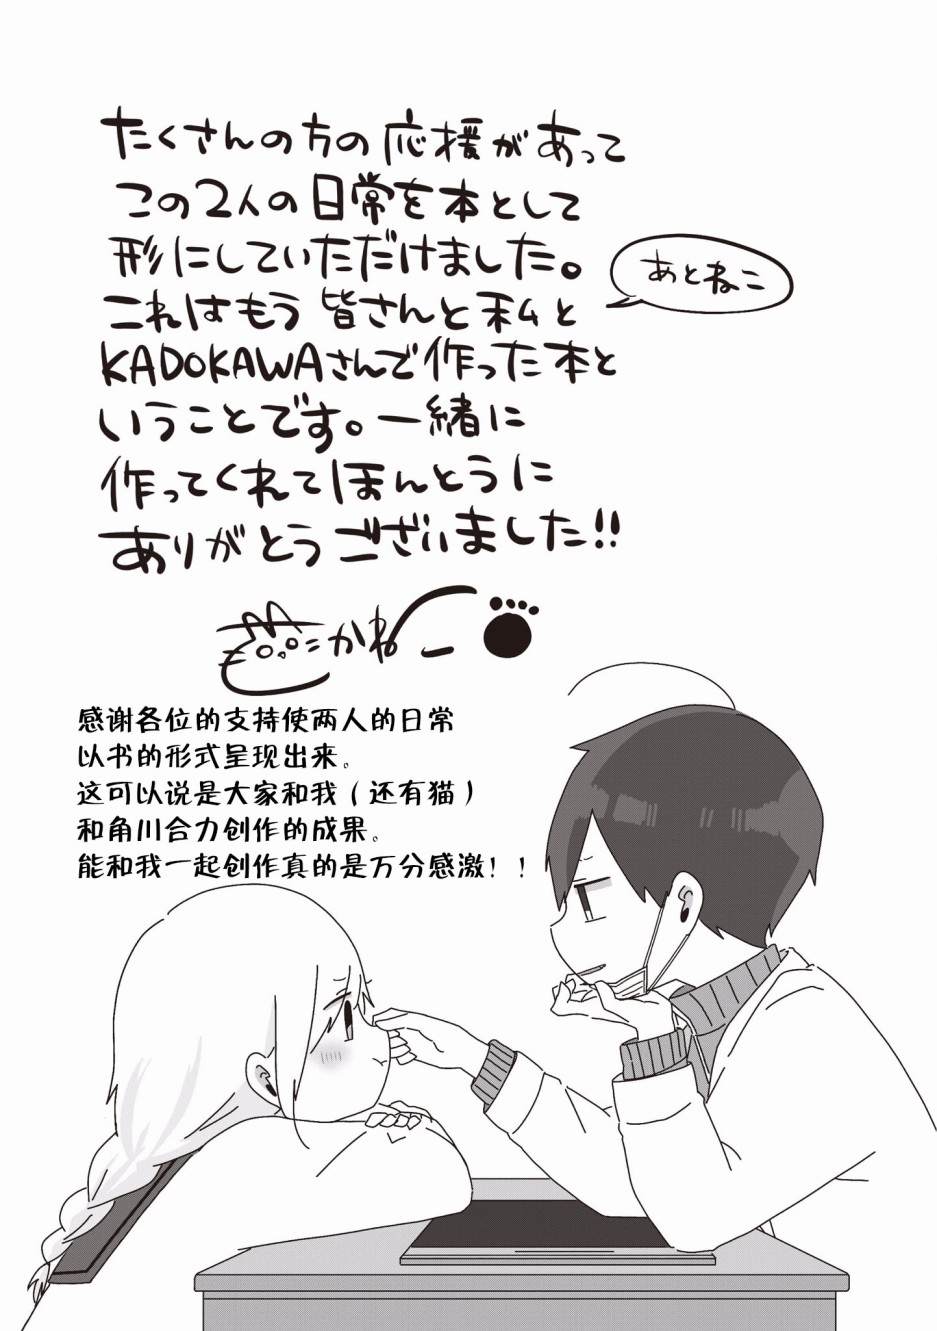 たくさんの方の応援があって
この2人の日常を本として
形にしていただけました。
あとねこ
これはもう皆さんと私と
KADOKAWAさんで作った本と
いうことです。一緒に
作ってくれてほんとうに
ありがとうございました!!
かねー
感谢各位的支持使两人的日常
以书的形式呈现出来。
这可以说是大家和我（还有猫）
和角川合力创作的成果。
能和我一起创作真的是万分感激！！